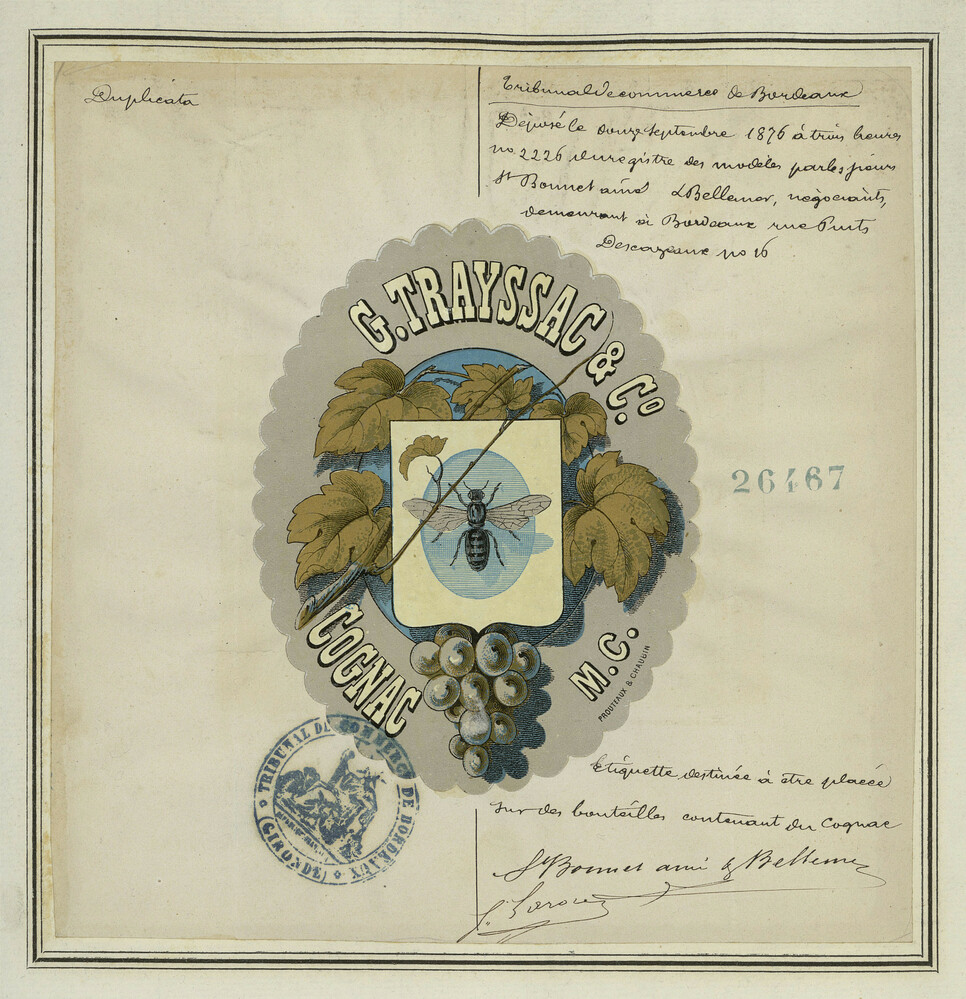 Duplicata
Tribunal de commerce de Bordeaux
Déposé le douze Septembre 1876 à trois heures
no 2226 du registre des modèles par les sieurs
St Bonnet ainé & Bellemer, négociants,
demeurant à Bordeaux rue Puits
Descazeaux no 16
G. TRAYSSAC & Co.
26467
COGNAC
M.C.
PROUTEAUX & CHAUBIN
TRIBUNAL DE COMMERCE DE BORDEAUX
(GIRONDE)
Etiquette destinée à être placée
sur des bouteilles contenant du Cognac
St Bonnet ainé & Bellemer